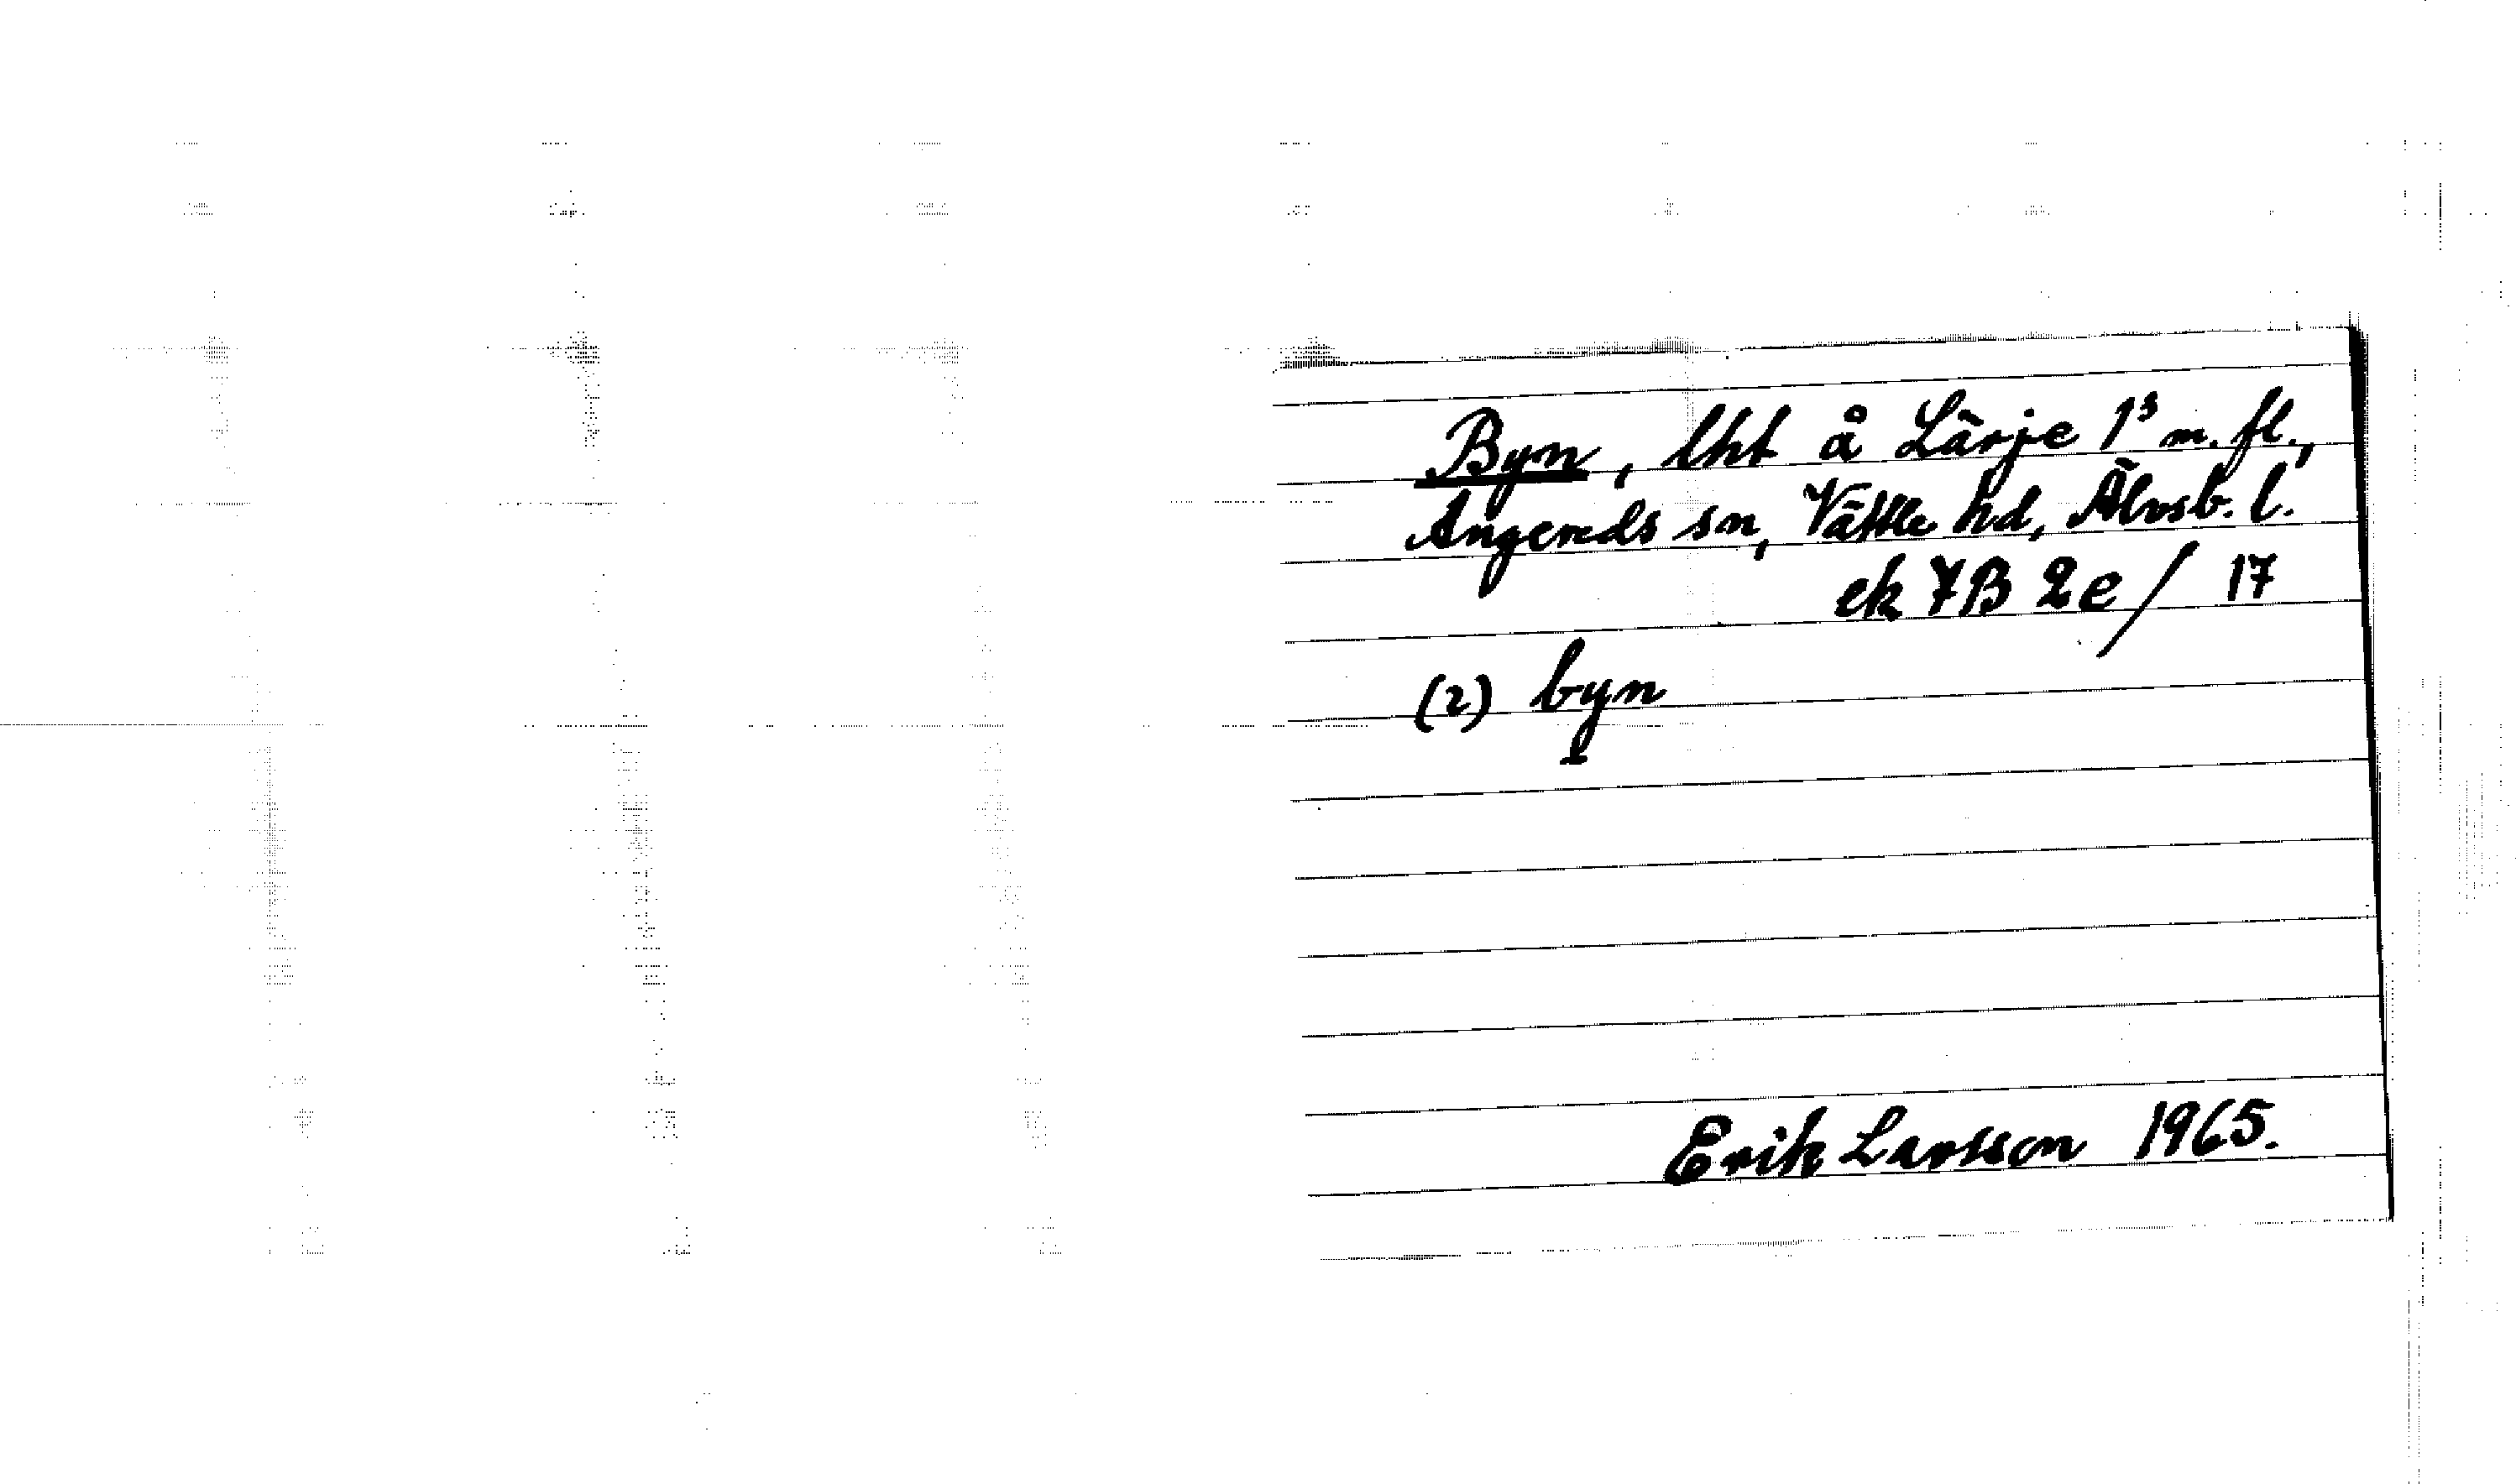 Byn, lht å Lärje 1³ m. fl.,
Angereds sn, Vättle hd, Älvsb. l.
ek 7B 2e / 17
(2) byn
Erik Larsson 1965.